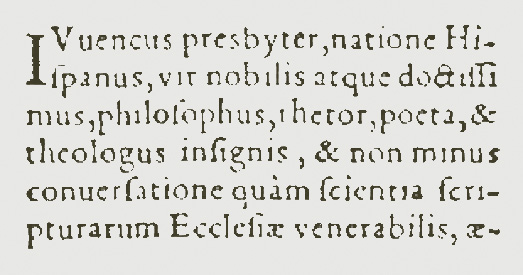 IVuencus presbyter, natione Hi-
ſpanus, vir nobilis atque doctiſſi
mus, philoſophus, rhetor, poeta, &
theologus inſignis, & non minus
conuerſatione quàm ſcientia ſcri-
pturarum Eccleſiæ venerabilis, æ-